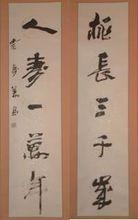 椿長三千歲
人壽一萬年